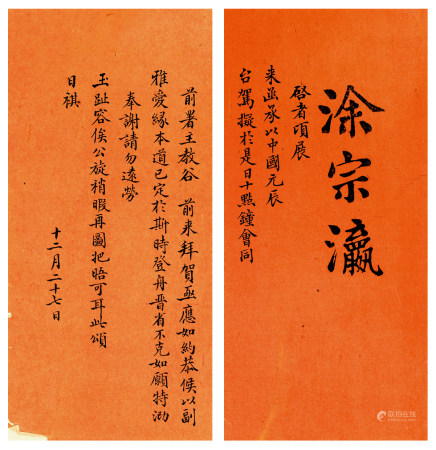 涂宗瀛
啓者頃展
來函承以中國元辰
台駕擬於是日十點鐘會同
前署主教谷 前來拜賀亟應如約恭候以副
雅愛緣本道已定於斯時登舟晋省不克如願特泐
奉謝請勿遠勞
玉趾容俟公旋稍暇再圖把晤可耳此頌
日祺
十二月二十七日